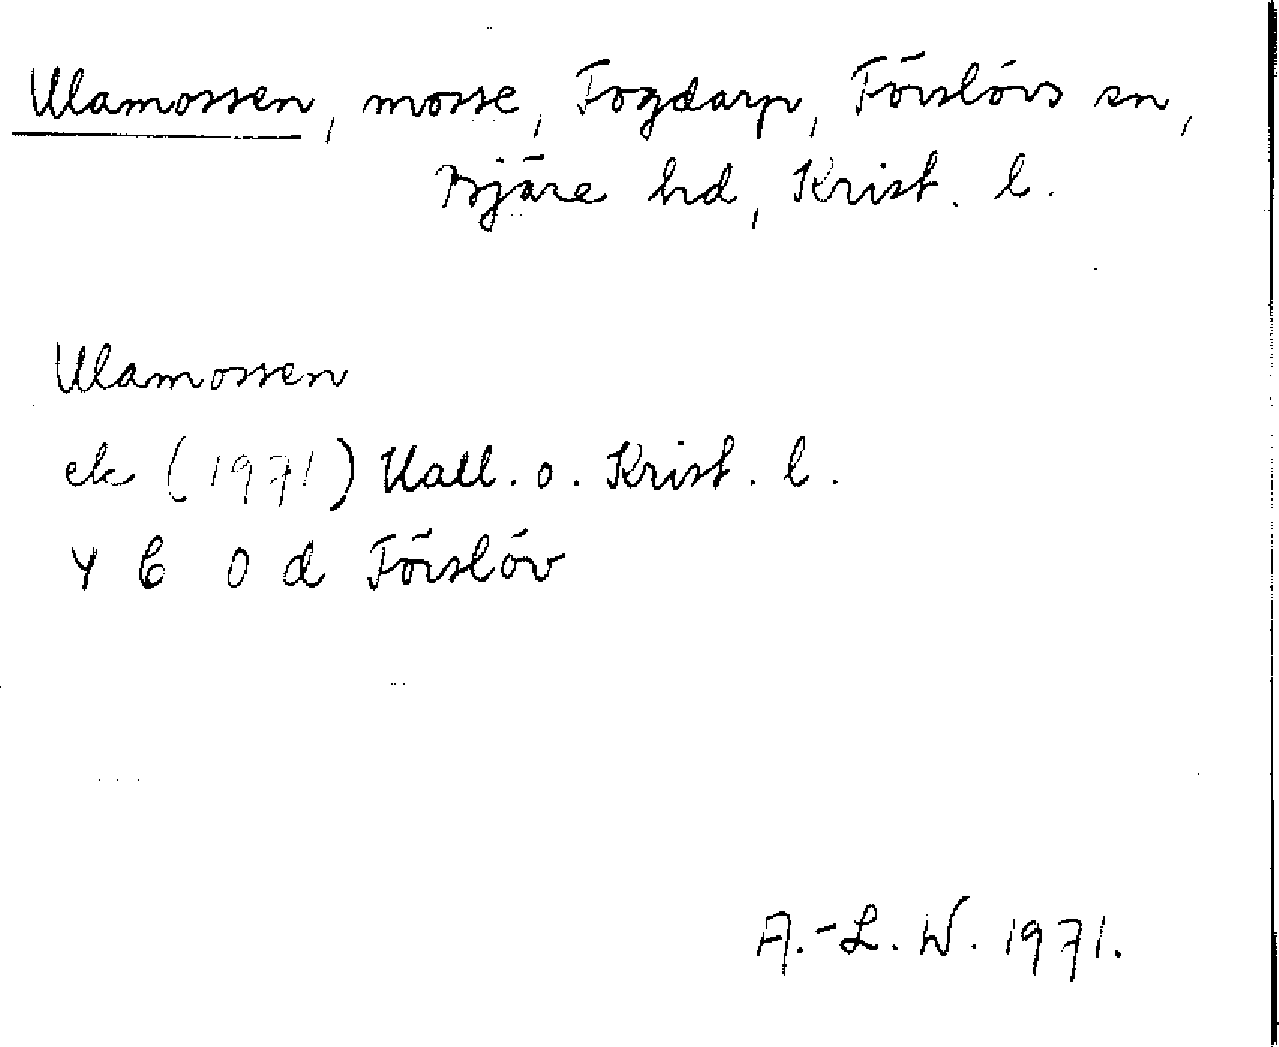 Ulamossen, mosse, Fogdarp, Förslövs sn,
Bjäre hd, Krist. l.
Ulamossen
ek (1971) Hall. o. Krist. l.
Y 6 0 d Förslöv
A.-L. W. 1971.